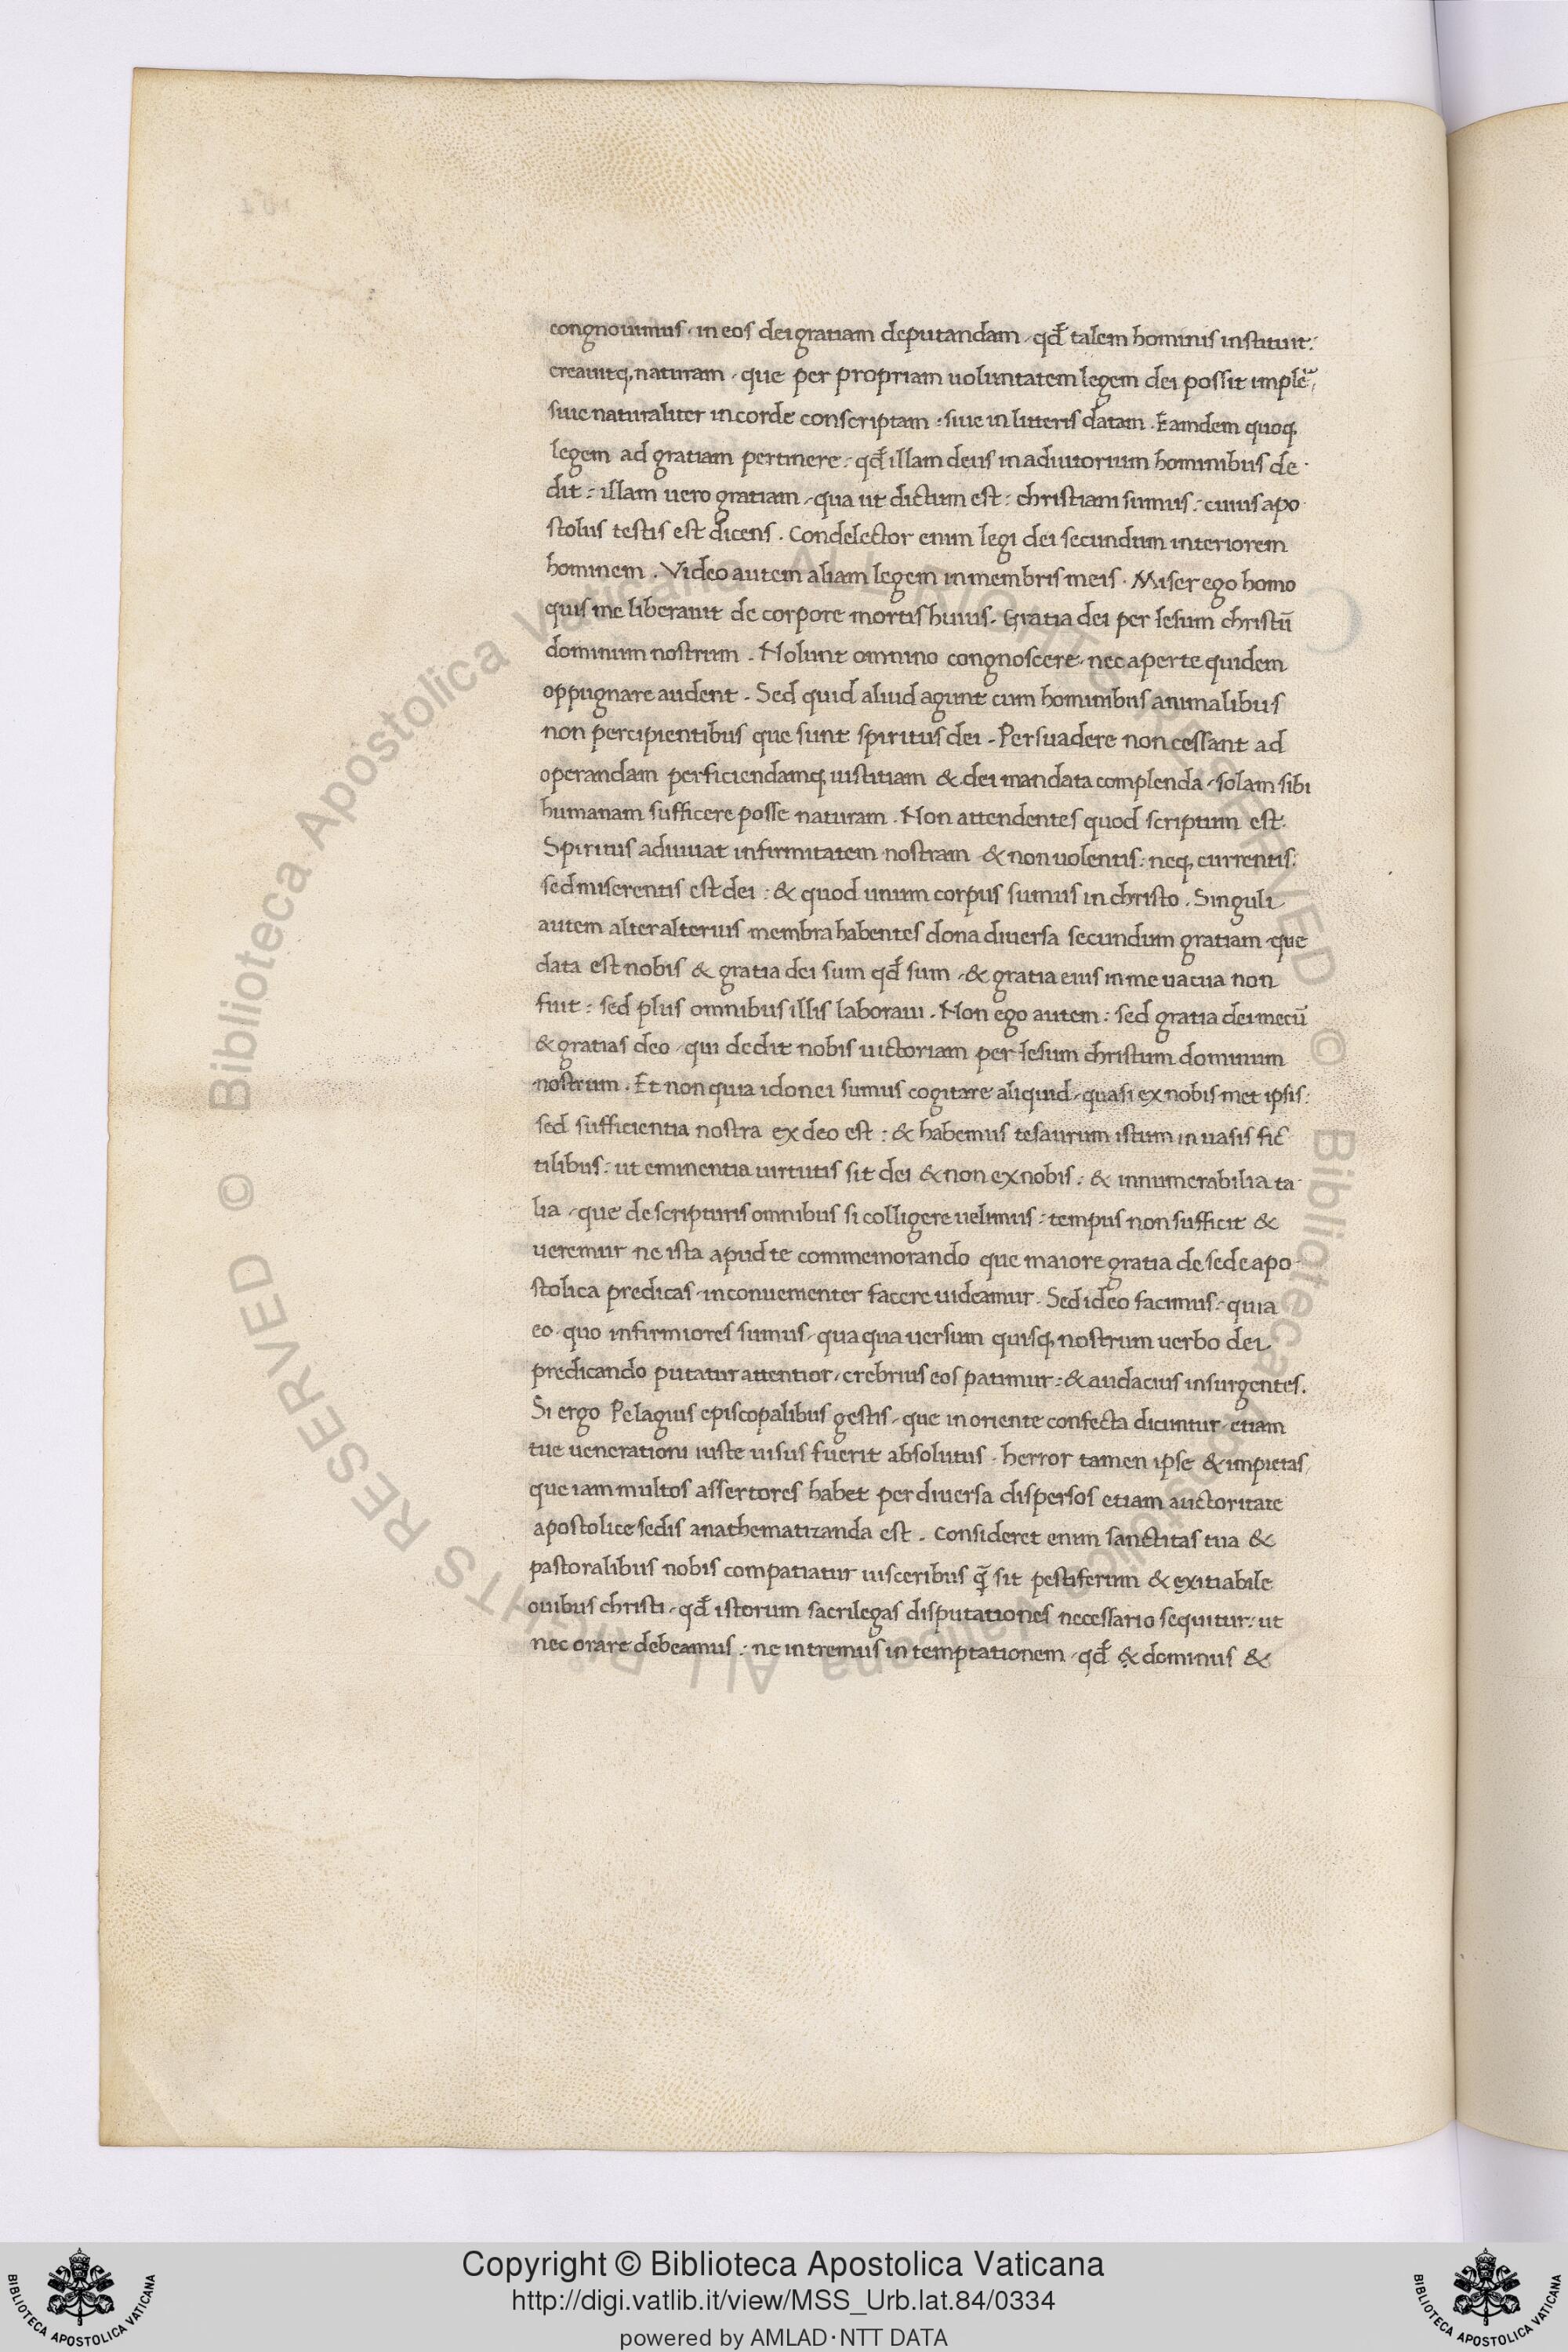 congnouimus · in eos dei gratiam deputandam · qđ talem hominis instituit:
creauitq; naturam · que per propriam uoluntatem legem dei possit implē
siue naturaliter in corde conscriptam · siue in litteris datam · Eamdem quoq;
legem ad gratiam pertinere · qđ illam deus in adiutorium hominibus de
dit : illam uero gratiam · qua ut dictum est : christiani sumus : cuius apo
stolus testis est dicens · Condelector enim legi dei secundum interiorem
hominem · Video autem aliam legem in membris meis · Miser ego homo
quis me liberauit de corpore mortis huius · Gratia dei per Iesum christū
dominum nostrum · Nolunt omnino congnoscere · nec aperte quidem
oppugnare audent · Sed quid aliud agunt cum hominibus animalibus
non percipientibus que sunt spiritus dei · Persuadere non cessant ad
operandam perficiendamq; iustitiam & dei mandata complenda · solam sibi
humanam sufficere posse naturam · Non attendentes quod scriptum est ·
Spiritus adiuuat infirmitatem nostram & non uolentis : neq; currentis :
sed miserentis est dei : & quod unum corpus sumus in christo · Singuli
autem alter alterius membra habentes dona diuersa secundum gratiam que
data est nobis & gratia dei sum qđ sum · & gratia eius in me uacua non
fuit : sed plus omnibus illis laboraui · Non ego autem : sed gratia dei mecū
& gratias deo · qui dedit nobis uictoriam per Iesum christum dominum
nostrum · Et non quia idonei sumus cogitare aliquid · quasi ex nobis met ipsis :
sed sufficientia nostra ex deo est : & habemus tesaurum istum in uasis fic
tilibus : ut eminentia uirtutis sit dei & non ex nobis : & innumerabilia ta
lia · que de scripturis omnibus si colligere uelimus : tempus non sufficit &
ueremur ne ista apud te commemorando que maiore gratia de sede apo
stolica predicas · inconuenienter facere uideamur · Sed ideo facimus : quia
eo · quo infirmiores sumus · qua qua uersum quisq; nostrum uerbo dei
predicando putatur attentior · crebrius eos patimur : & audacius insurgentes ·
Si ergo Pelagius episcopalibus gestis · que in oriente confecta dicuntur · etiam
tue uenerationi iuste uisus fuerit absolutus · herror tamen ipse & impietas
que iam multos assertores habet per diuersa dispersos etiam auctoritate
apostolice sedis anathematizanda est · Consideret enim sanctitas tua &
pastoralibus nobis compatiatur uisceribus q̄ sit pestiferum & exitiabile
ouibus christi · qđ istorum sacrilegas disputationes necessario sequitur : ut
nec orare debeamus : ne intremus in temptationem · qđ & dominus &
© Biblioteca Apostolica Vaticana ALL RIGHTS RESERVED © Biblioteca Apostolica Vaticana ALL RIGHTS RESERVED
BIBLIOTECA APOSTOLICA VATICANA
Copyright © Biblioteca Apostolica Vaticana
http://digi.vatlib.it/view/MSS_Urb.lat.84/0334
powered by AMLAD·NTT DATA
BIBLIOTECA APOSTOLICA VATICANA